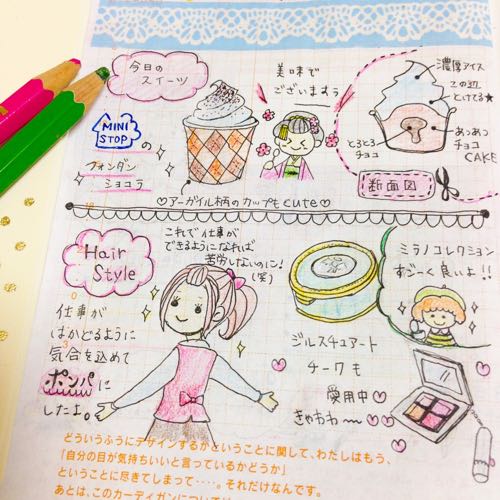 今日の
スイーツ
MINI
STOP
の
フォンダン
ショコラ
美味で
ございますぅ
濃厚アイス
この辺
とける★
あっつ
チョコ
CAKE
とろとろ
チョコ
断面図
♡アーガイル柄のカップもcute♡
Hair
Style
これで仕事が
できるようになれば
苦労しないのに!
(笑)
ミラノコレクション
すごーく良いよ!!
仕事が
はかどるように
気合を込めて
ポンパに
したよ。
ジルスチュアート
チークも
愛用中♡
きゃわわー♡♡
どういうふうにデザインするかということに関して、わたしはもう、
「自分の目が気持ちいいと言っているかどうか」
ということに尽きてしまって‥‥。それだけなんです。
あとは、このカーディガンについて